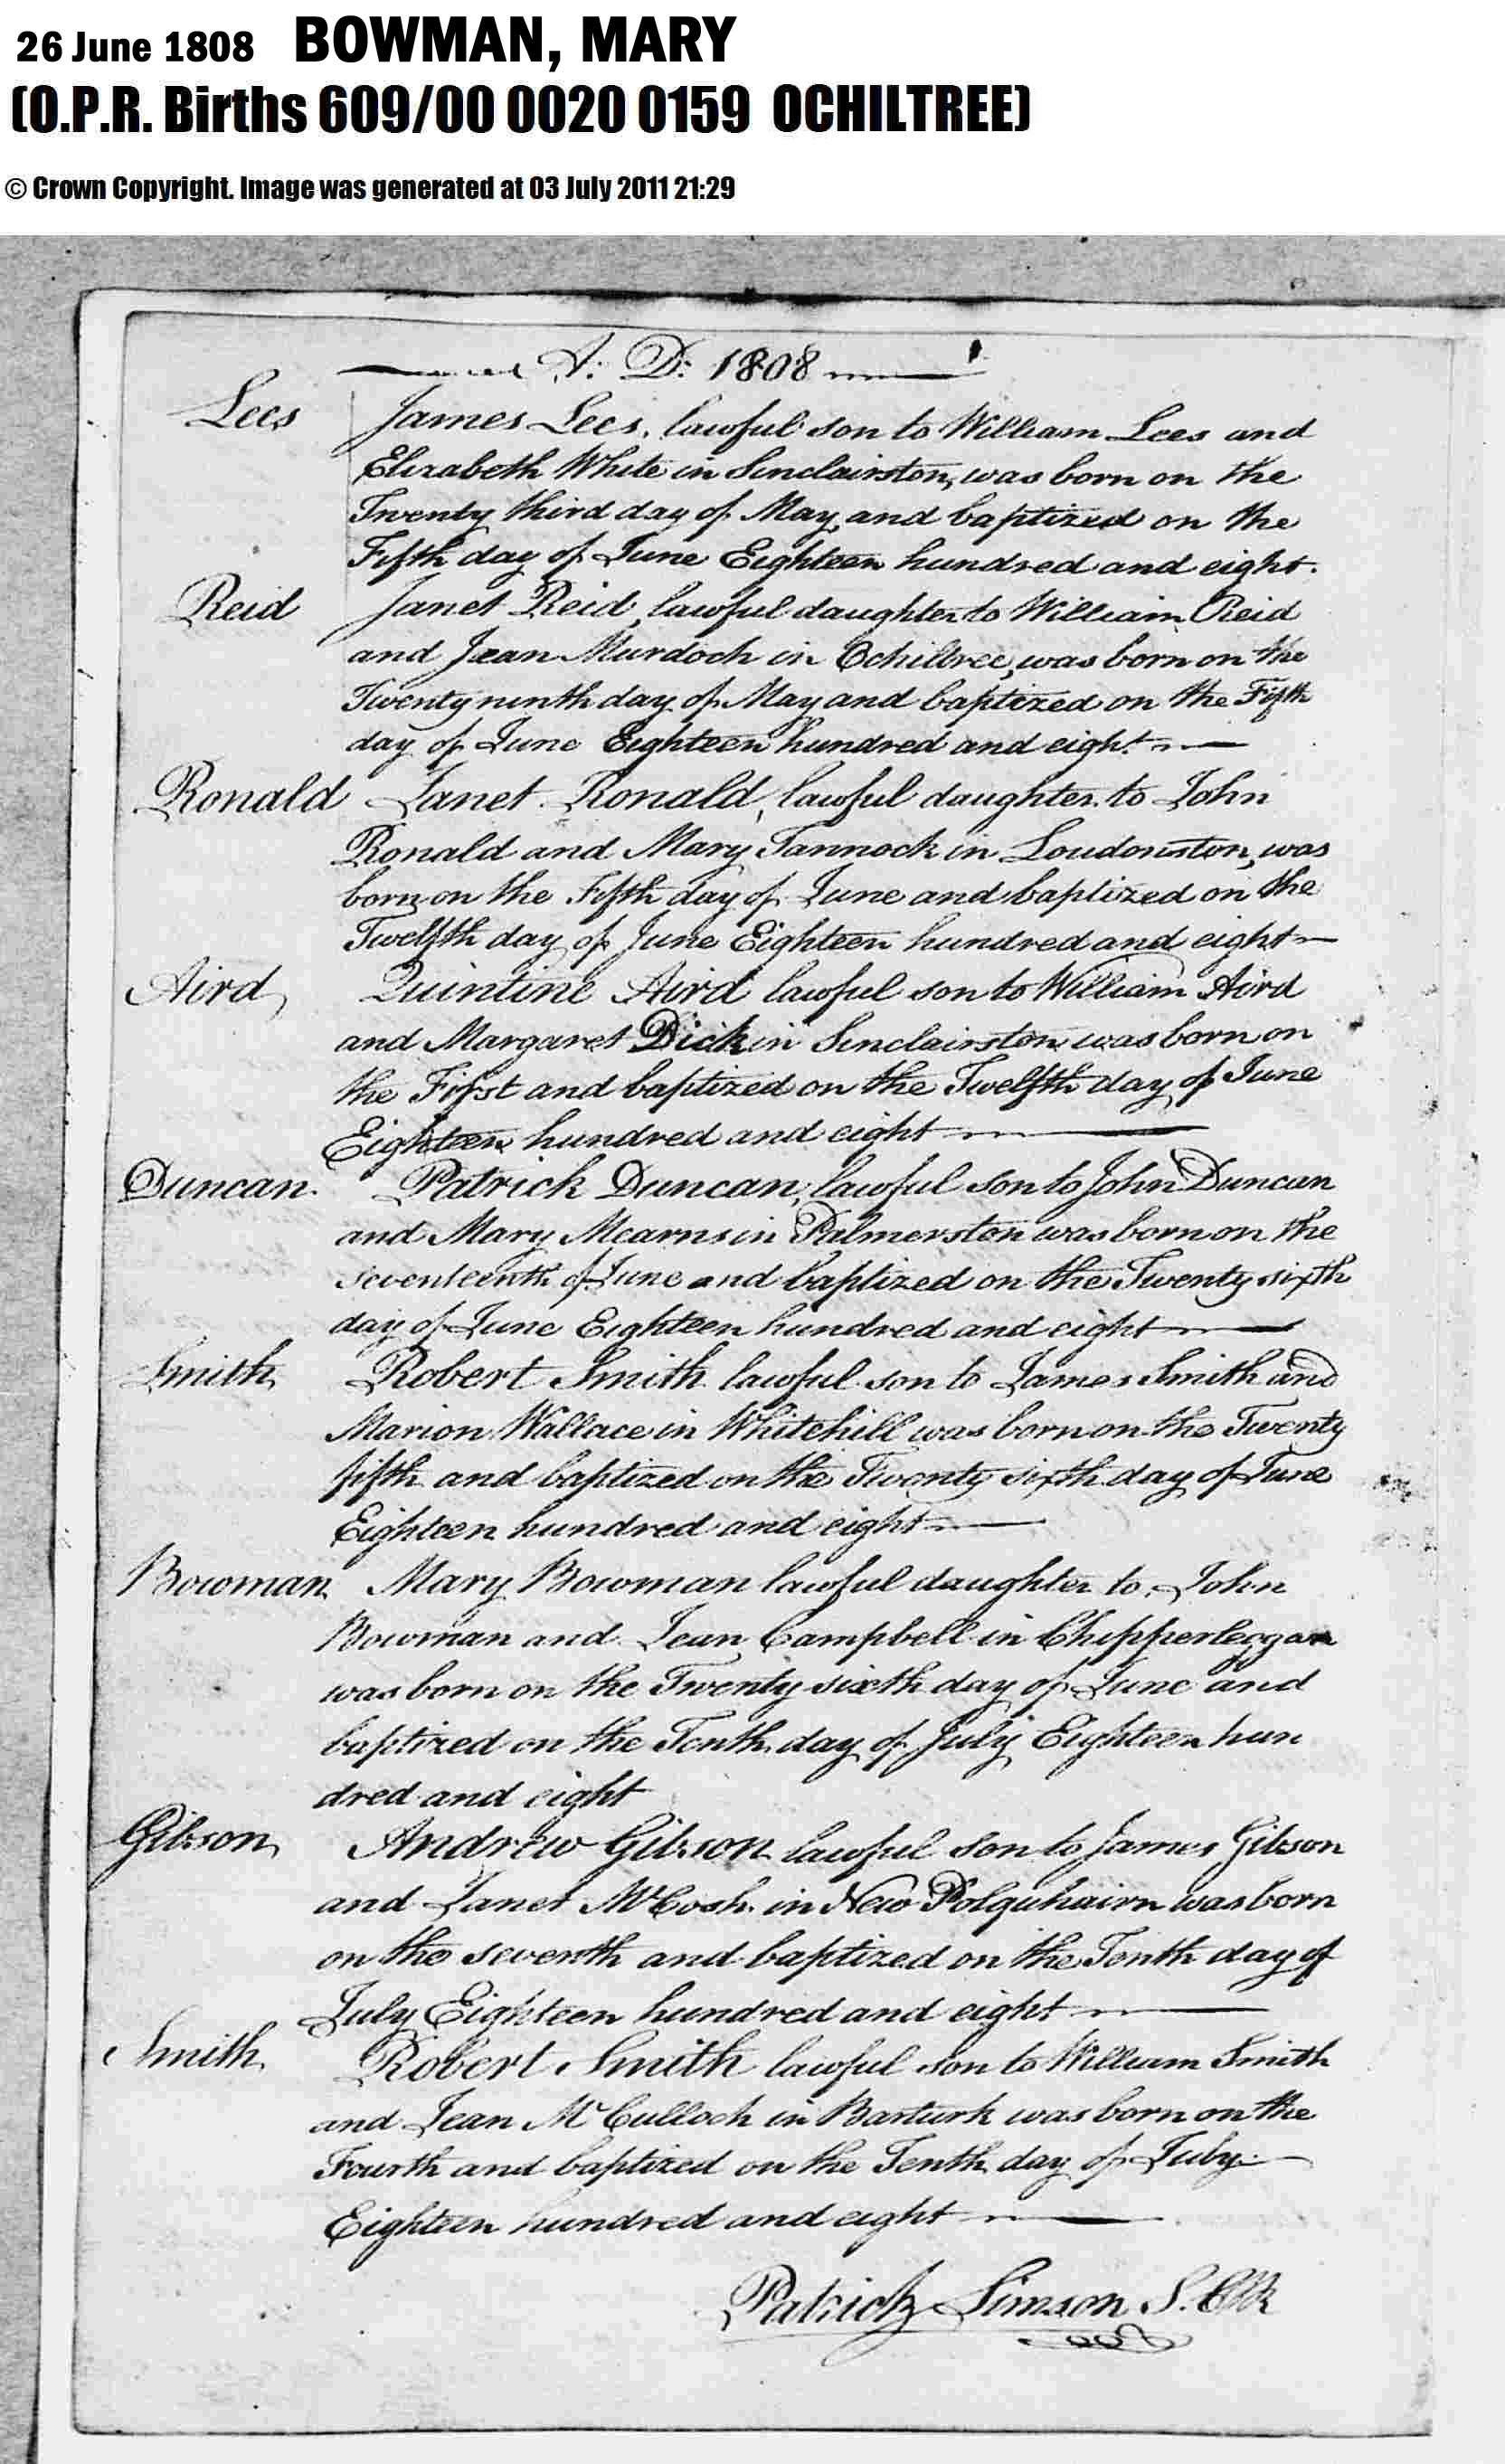 26 June 1808 BOWMAN, MARY
(O.P.R. Births 609/00 0020 0159 OCHILTREE)
© Crown Copyright. Image was generated at 03 July 2011 21:29
A: D: 1808
Lees James Lees, lawful son to William Lees and
Elizabeth White in Sinclairston, was born on the
Twenty third day of May, and baptized on the
Fifth day of June Eighteen hundred and eight.
Reid Janet Reid, lawful daughter to William Reid
and Jean Murdoch in Ochiltree, was born on the
Twenty ninth day of May and baptized on the Fifth
day of June Eighteen hundred and eight
Ronald Janet Ronald, lawful daughter to John
Ronald and Mary Tannock in Loudonston, was
born on the Fifth day of June and baptized on the
Twelfth day of June Eighteen hundred and eight
Aird Quintine Aird lawful son to William Aird
and Margaret Dick in Sinclairston was born on
the First and baptized on the Twelfth day of June
Eighteen hundred and eight
Duncan. Patrick Duncan, lawful son to John Duncan
and Mary Mearns in Palmerston was born on the
seventeenth of June and baptized on the Twenty sixth
day of June Eighteen hundred and eight
Smith Robert Smith lawful son to James Smith and
Marion Wallace in Whitehill was born on the Twenty
fifth and baptized on the Twenty sixth day of June
Eighteen hundred and eight
Bowman Mary Bowman lawful daughter to John
Bowman and Jean Campbell in Chipperleggan
was born on the Twenty sixth day of June and
baptized on the Tenth day of July Eighteen hun
dred and eight
Gibson Andrew Gibson lawful son to James Gibson
and Janet McCosh in New Polquhairn was born
on the seventh and baptized on the Tenth day of
July Eighteen hundred and eight
Smith Robert Smith lawful son to William Smith
and Jean McCulloch in Barturk was born on the
Fourth and baptized on the Tenth day of July
Eighteen hundred and eight
Patrick Simson S. Clk